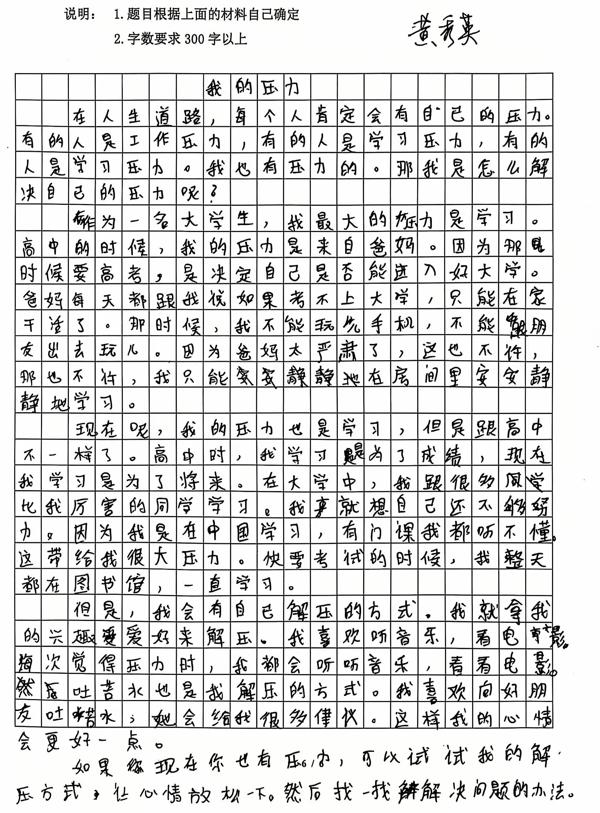 说明： 1.题目根据上面的材料自己确定
2.字数要求300字以上
黄秀英
我的压力
在人生道路，每个人肯定会有自己的压力。
有的人是工作压力，有的人是学习压力，有的
人是学习压力。我也有压力的。那我是怎么解
决自己的压力呢？
作为一名大学生，我最大的压力是学习。
高中的时候，我的压力是来自爸妈。因为那
时候要高考，是决定自己是否能进入好大学。
爸妈每天都跟我说如果考不上大学，只能在家
干活了。那时候，我不能玩儿手机，不能跟朋
友出去玩儿。因为爸妈太严肃了，这也不许，
那也不许，我只能安安静静地在房间里安安静
静地学习。
现在呢，我的压力也是学习，但是跟高中
不一样了。高中时，我学习是为了成绩，现在
我学习是为了将来。在大学中，我跟很多同学
比我厉害的同学学习。我就想自己还不够努
力。因为我是在中国学习，有门课我都听不懂。
这带给我很大压力。快要考试的时候，我整天
都在图书馆，一直学习。
但是，我会有自己解压的方式。我就拿我
的兴趣爱好来解压。我喜欢听音乐，看电影。
每次觉得压力时，我都会听听音乐，看看电影。
然后吐苦水也是我解压的方式。我喜欢向好朋
友吐苦水，她会给我很多建议。这样我的心情
会更好一点。
如果你现在你也有压力，可以试试我的解
压方式，让心情放松一下。然后找一找解决问题的办法。